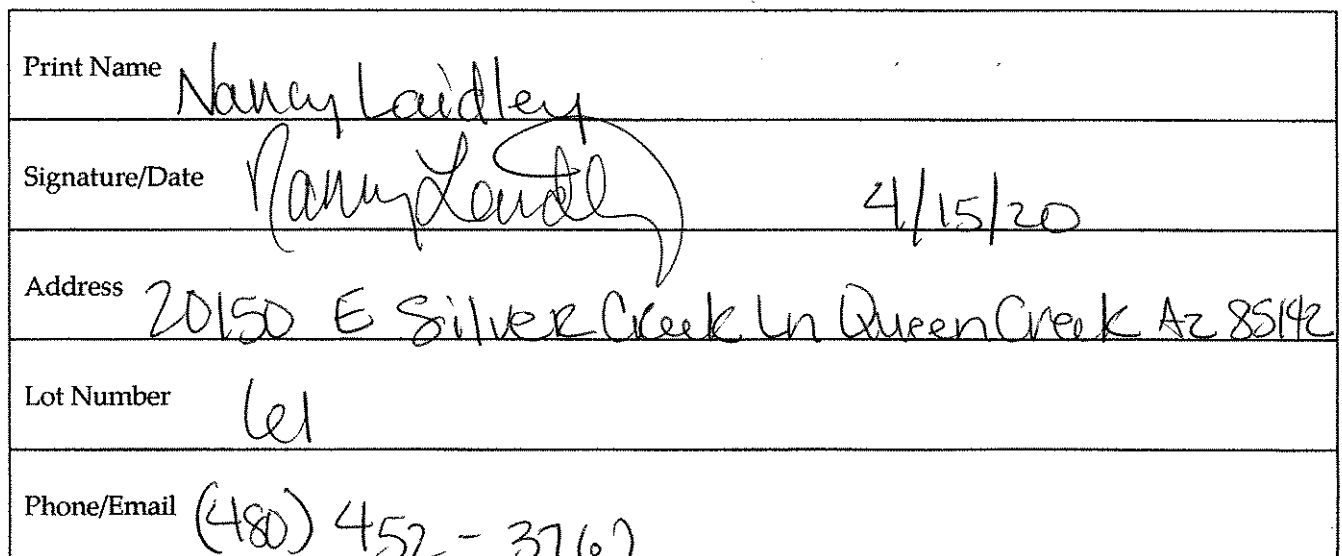 Print Name Nancy Laidley
Signature/Date Nancy Laidley 4/15/20
Address 20150 E Silver Creek Ln Queen Creek Az 85142
Lot Number 61
Phone/Email (480) 452-